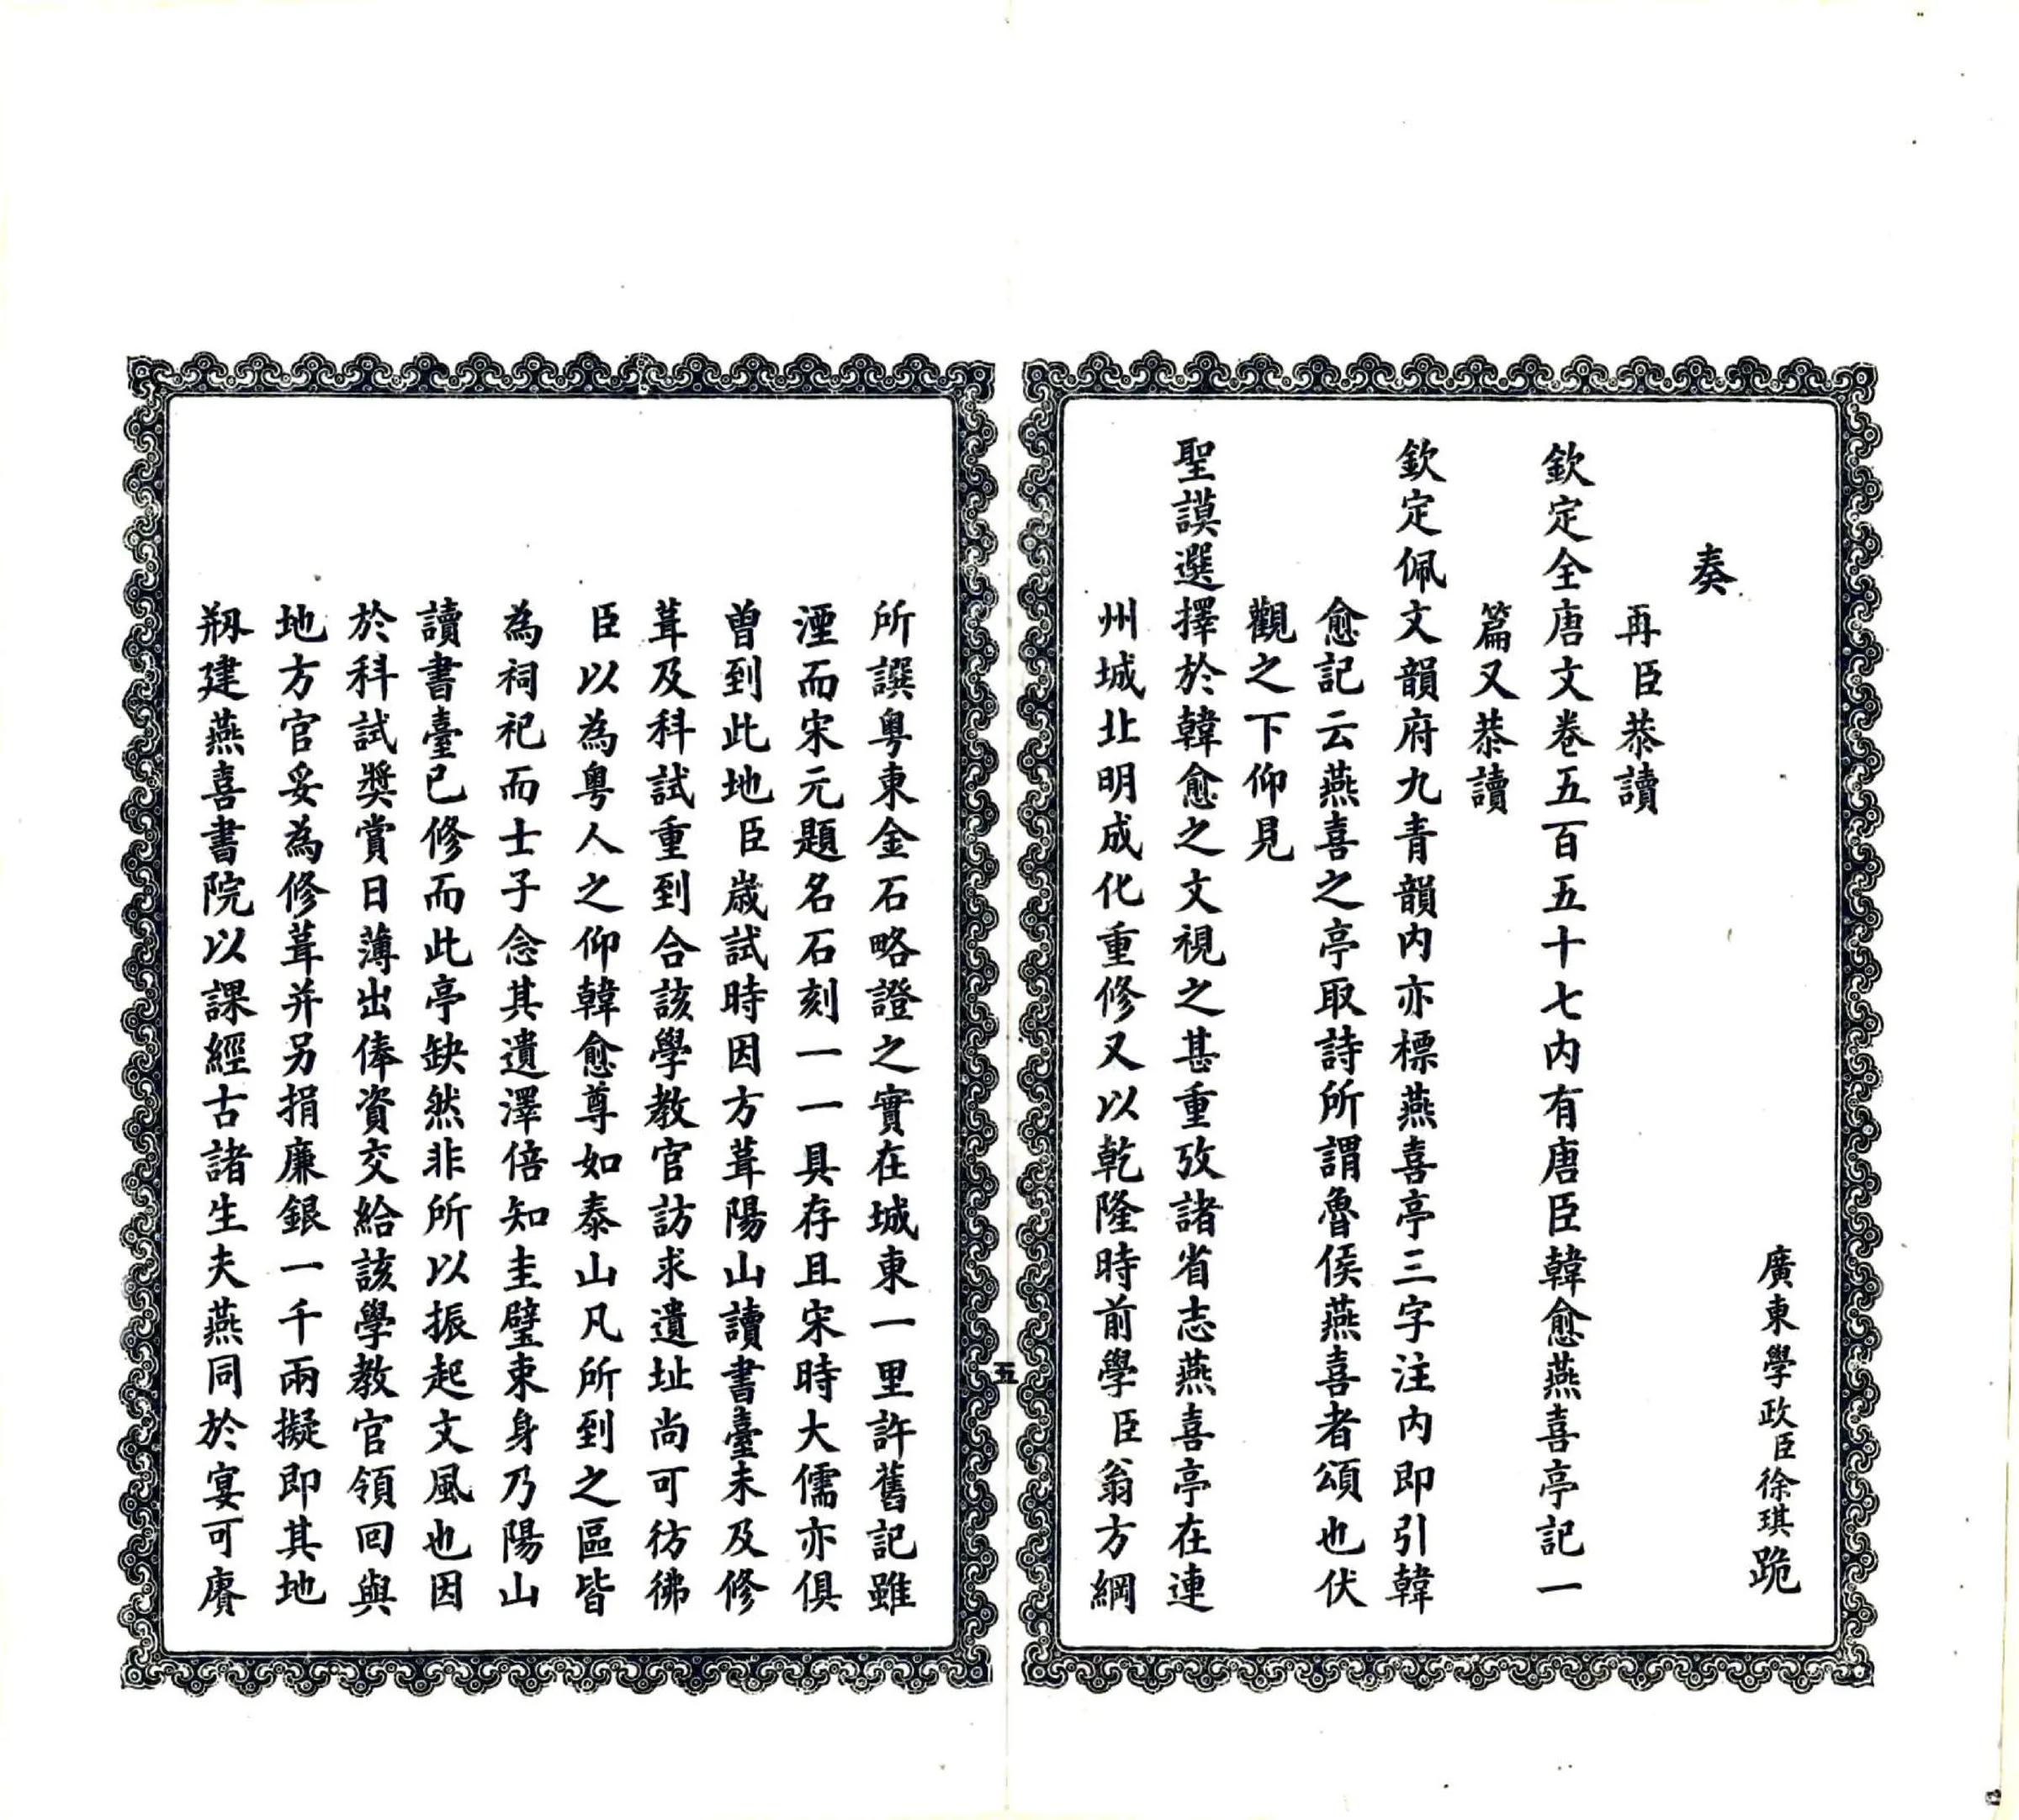 廣東學政臣徐琪跪
奏
再臣恭讀
欽定全唐文卷五百五十七內有唐臣韓愈燕喜亭記一
篇又恭讀
欽定佩文韻府九青韻內亦標燕喜亭三字注內即引韓
愈記云燕喜之亭取詩所謂魯侯燕喜者頌也伏
觀之下仰見
聖謨選擇於韓愈之文視之甚重攷諸省志燕喜亭在連
州城北明成化重修又以乾隆時前學臣翁方綱
五
所譔粵東金石略證之實在城東一里許舊記雖
湮而宋元題名石刻一一具存且宋時大儒亦俱
曾到此地臣歲試時因方葺陽山讀書臺未及修
葺及科試重到合該學教官訪求遺址尚可彷彿
臣以為粵人之仰韓愈尊如泰山凡所到之區皆
為祠祀而士子念其遺澤倍知圭璧束身乃陽山
讀書臺已修而此亭缺然非所以振起文風也因
於科試獎賞日薄出俸資交給該學教官領回與
地方官妥為修葺并另捐廉銀一千兩擬即其地
剏建燕喜書院以課經古諸生夫燕同於宴可賡